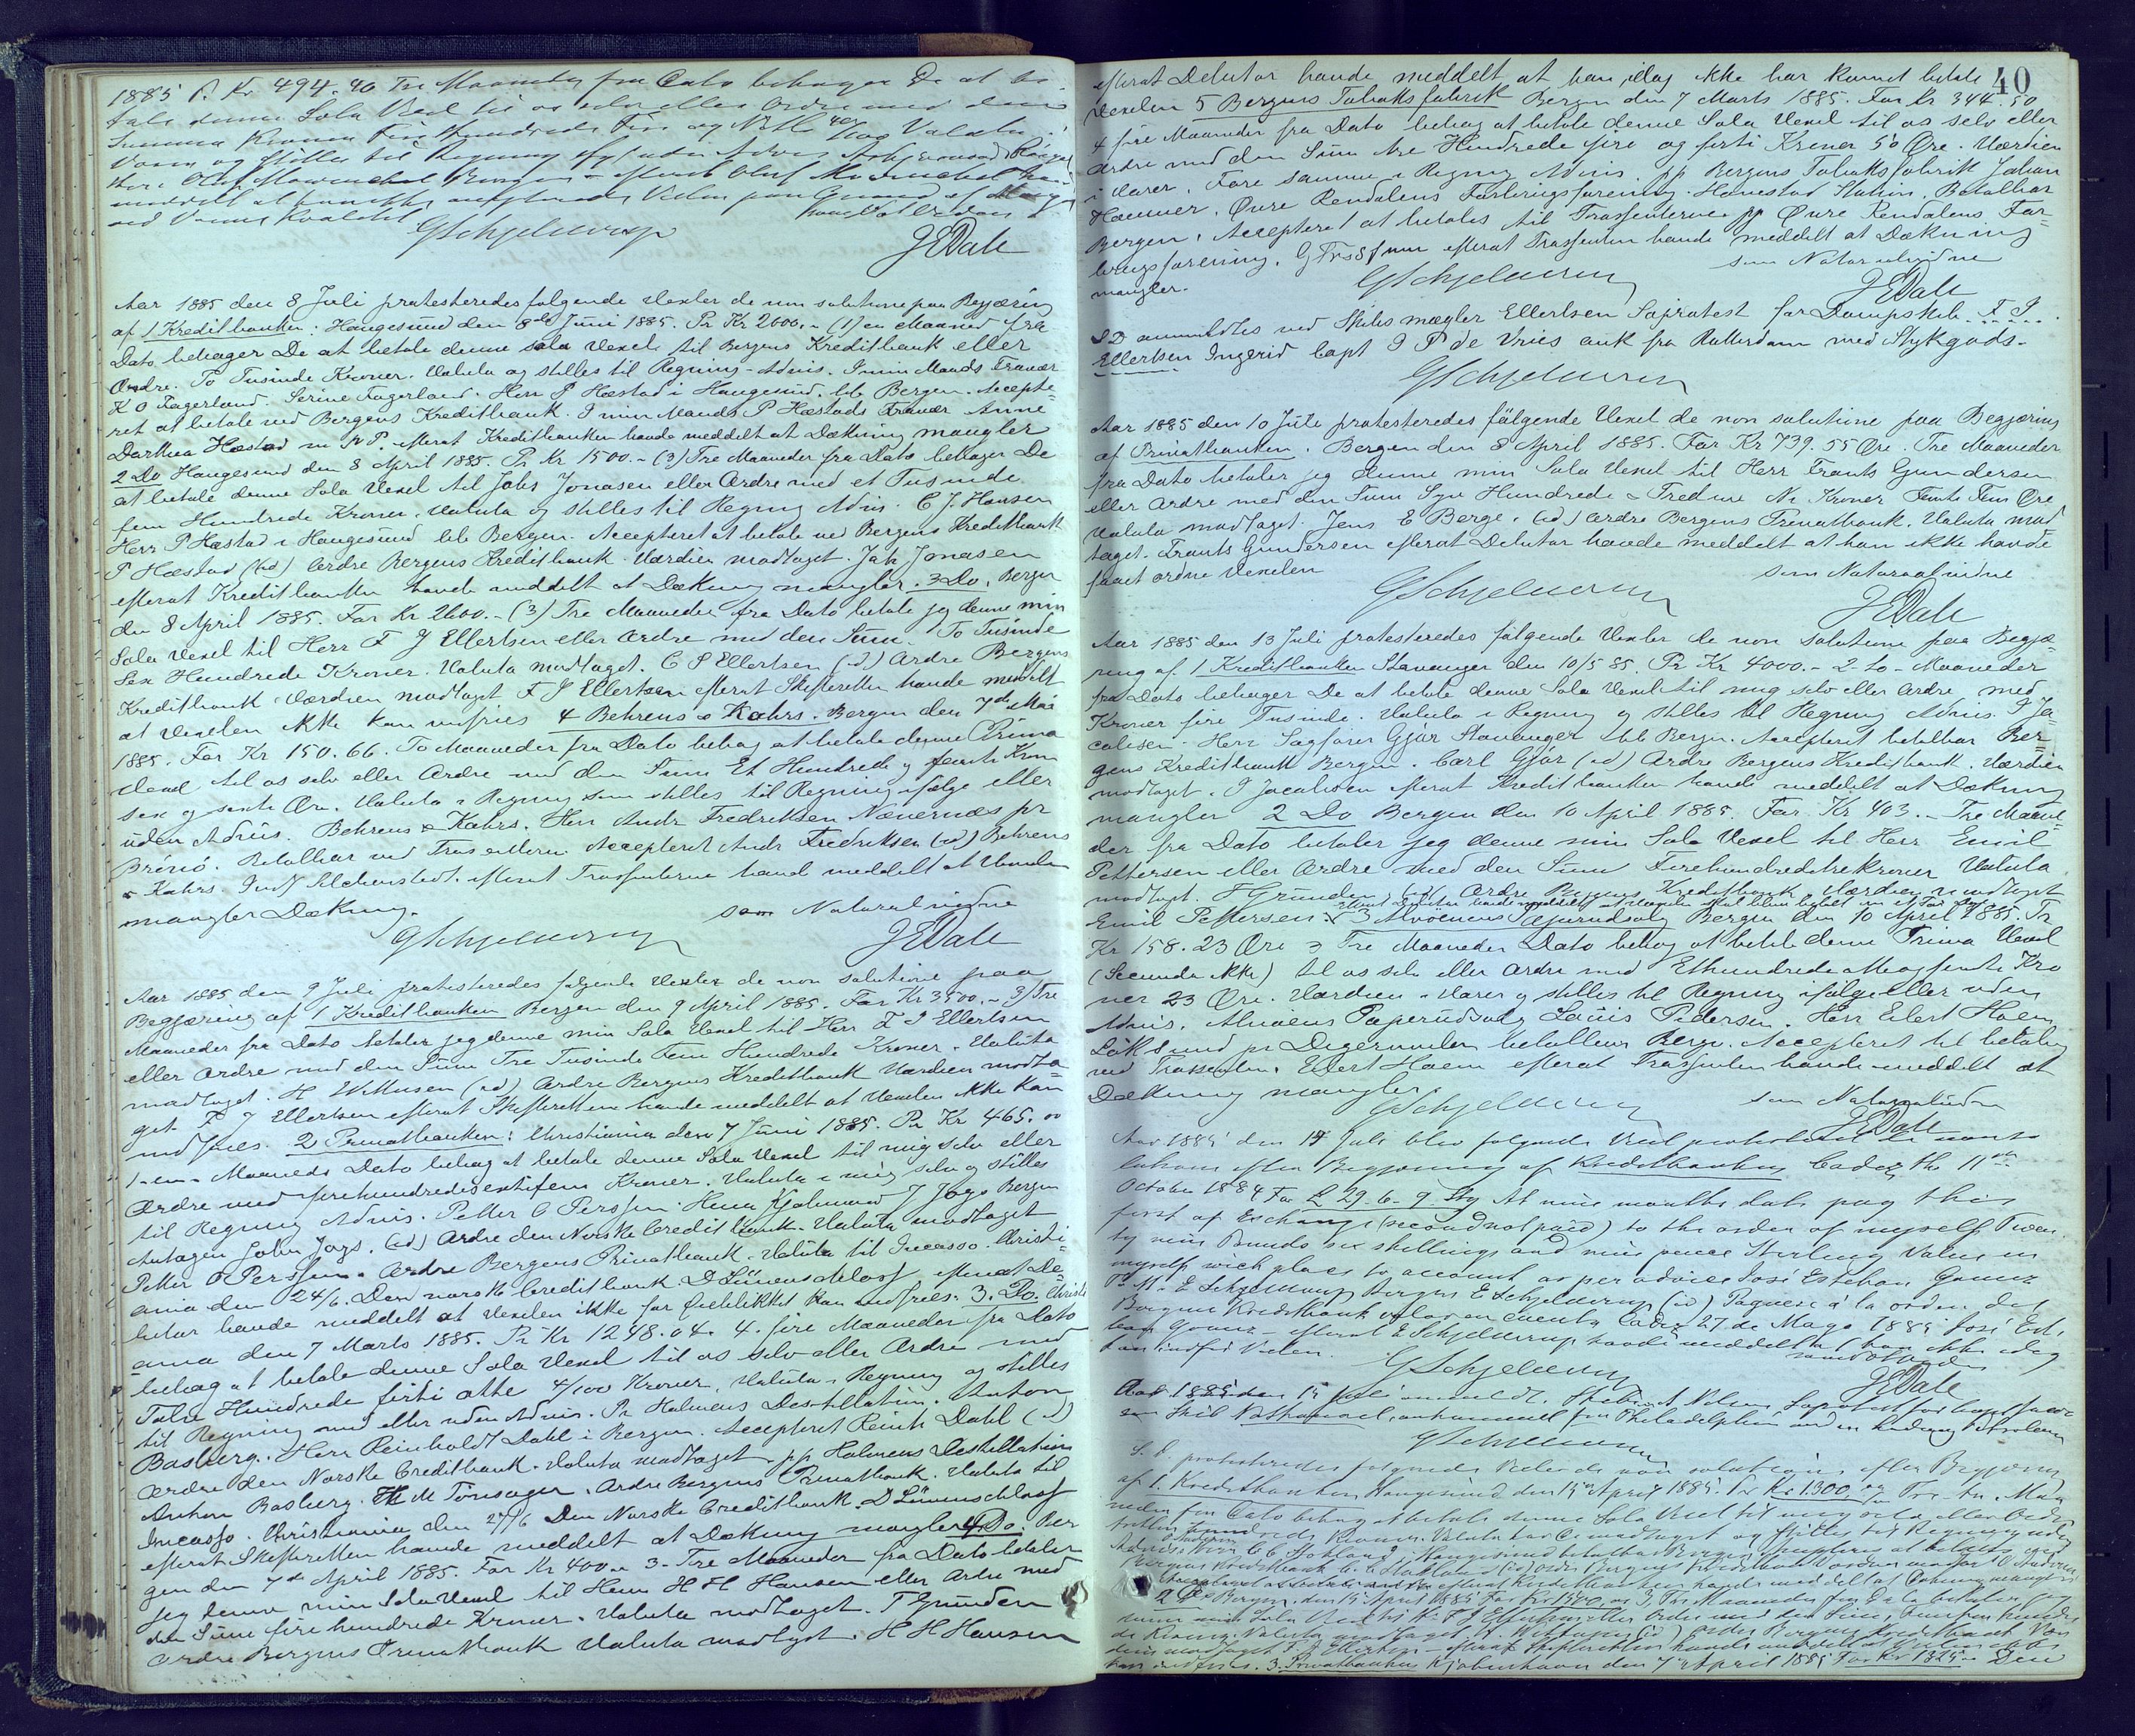 1885 P. Kr 494.40 Tre Maaneder fra Dato behager De at be-
tale denne Sola Vexel til os selv eller Ordre med den
Summa Kroner Fire Hundrede Fire og Nitti 40/100 Valuta i
Varer og stilles til Regning
Olaf Bergen - efterat Oluf
meddelt at han ikke Vexlen paa Grund af
ved Varens Kvalitet
GSchjelderup
JEDale
Aar 1885 den 8 Juli protesteredes følgende Vexler de non solutione paa Begjæring
af 1 Kreditbanken: Haugesund den 8de Juni 1885. Pr Kr 2000.- (1) en Maaned fra
Dato behager De at betale denne sola Vexel til Bergens Kreditbank eller
Ordre. To Tusinde Kroner. Valuta og stilles til Regning - Advis. I min Mands Fravær
K O Fagerland. Serine Fagerland. Herr P Hæstad i Haugesund. bb Bergen. Accepte-
ret at betale ved Bergens Kreditbank. I min Mands P Hæstads Fravær Anne
Darthea Hæstad m N P. efterat Kreditbanken havde meddelt at Dækning mangler
2 Do Haugesund den 8 April 1885. Pr Kr 1500.- (3) Tre Maaneder fra Dato behager De
at betale denne Sola Vexel til Jahs Jonasen eller Ordre med et Tusinde
fem Hundrede Kroner. Valuta og stilles til Regning Advis. C J. Hansen
Herr P Hæstad i Haugesund bb Bergen. Accepteret at betale ved Bergens Kreditbank
P Hæstad (id) Ordre Bergens Kreditbank. Værdien modtaget. Jah Jonasen
efterat Kreditbanken havde meddelt at Dækning mangler. 3 Do. Bergen
den 8 April 1885. For Kr 2600.- (3) Tre Maaneder fra Dato betale jeg denne min
Sola Vexel til Herr F J Ellertsen eller Ordre med den Sum To Tusinde
Sex Hundrede Kroner. Valuta modtaget. C S Ellertsen (id) Ordre Bergens
Kreditbank Værdien modtaget F J Ellertsen efterat Skifteretten havde meddelt
at Vexelen ikke kan indfries 4 Behrens & Kahrs. Bergen den 7de Mai
1885. For Kr 150.66. To Maaneder fra Dato behag at betale denne Prima
Vexel til os selv eller Ordre med den Sum Et Hundrede og femti Kroner
sex og sexti Øre. Valuta i Regning som stilles til Regning ifølge eller
uden Advis. Behrens & Kahrs. Herr Andr Fredriksen Nævernæs pr
Brønø. Betalbar ved Trassenterne. Accepteret Andr Fredriksen (id) Behrens
& Kahrs. efterat Trassenterne havde meddelt at Vexelen
mangler Dækning.
som Notarialvidne
GSchjelderup
JEDale
Aar 1885 den 9 Juli protesteredes følgende Vexler de non solutione paa
Begjæring af 1 Kreditbanken Bergen den 9 April 1885. For Kr 3500.- 3) Tre
Maaneder fra Dato betaler jeg denne min Sola Vexel til Herr F J Ellertsen
eller Ordre med den Sum Tre Tusinde Fem Hundrede Kroner. Valuta
modtaget. H (id) Ordre Bergens Kreditbank Værdien modta-
get F J Ellertsen efterat Skifteretten havde meddelt at Vexelen ikke kan
indfries. 2 Privatbanken: Christiania den 7 Juni 1885. Pr Kr 465.00
1-en- Maaneds Dato behag at betale denne Sola Vexel til mig selv eller
Ordre med firehundredesextifem Kroner. Valuta i mig selv og stilles
til Regning Advis. Petter O Perssen. Herr Hjalmar J Jays Bergen
Antagen John Jays. (id) Ordre den Norske Creditbank. Valuta modtaget
Petter O Perssen. Ordre Bergens Privatbank. Valuta til Incasso. Christi-
ania den 24/6. Den norske Creditbank D Lünenschloss efterat De-
bitor havde meddelt at Vexelen ikke for Øieblikket kan indfries. 3. Do. Christi
ania den 7 Marts 1885. Pr Kr 1248.04. 4. fire Maaneder fra Dato
behag at betale denne Sola Vexel til os selv eller Ordre med
Tolv Hundrede førti otte 4/100 Kroner, Valuta i Regning og stilles
til Regning med eller uden Advis. Pr Holmens Destillation. Anton
Basberg. Herr Reinholdt Dahl i Bergen. Accepteret Reinh Dahl (id)
Ordre den Norske Creditbank. Valuta modtaget. pp Holmens Destillation
Anton Basberg. M Tønsager. Ordre Bergens Privatbank. Valuta til
Incasso. Christiania den 27/6 Den Norske Creditbank. D Lünenschloss
efterat Skifteretten havde meddelt at Dækning mangler 4 Do. Ber
gen den 7de April 1885. For Kr 400.- 3- Tre Maaneder fra Dato betaler
jeg denne min Sola Vexel til Herr H H Hansen eller Ordre med
den Sum fire hundrede Kroner. Valuta modtaget. T Grunden
Ordre Bergens Privatbank Valuta modtaget. H H Hansen
40
efterat Debitor havde meddelt at han idag ikke har kunnet betale
Vexelen 5 Bergens Tobaksfabrik Bergen den 7 Marts 1885. For Kr 344.50
4 fire Maaneder fra Dato behag at betale denne Sola Vexel til os selv eller
Ordre med den Sum tre Hundrede fire og førti Kroner 50 Øre. Værdien
i Varer. Føre samme i Regning Advis. pp Bergens Tobaksfabrik Johan
Hammer. Øvre Rendalens Forbrugsforening. Hanestad Station. Betalbar
Bergen. Accepteret at betales til Trassenterne pp Øvre Rendalens For-
brugsforening. efterat Trassenten havde meddelt at Dækning
mangler.
som Notarialvidne
GSchjelderup
JEDale
S D anmeldtes ved Skibsmægler Ellertsen Søprotest for Dampskib. F. J.
Ellertsen Ingerid Capt I P de Vries ank fra Rotterdam med Stykgods.
GSchjelderup
Aar 1885 den 10 Juli protesteredes følgende Vexel de non solutione paa Begjæring
af Privatbanken. Bergen den 8 April 1885. For Kr 739.55 Øre. Tre Maaneder
fra Dato betaler jeg denne min Sola Vexel til Herr Frants Gundersen
eller Ordre med den Sum Syv Hundrede & Tredive Ni Kroner Femti Fem Øre
Valuta modtaget. Jens E Berge. (id) Ordre Bergens Privatbank. Valuta mod
taget. Frants Gundersen efterat Debitor havde meddelt at han ikke havde
faaet ordne Vexelen
som Notarialvidne
GSchjelderup
JEDale
Aar 1885 den 13 Juli protesteredes følgende Vexler de non solutione paa Begjæ-
ring af 1 Kreditbanken Stavanger den 10/5 85. Pr Kr 4000.- 2-to-Maaneder
fra Dato behager De at betale denne Sola Vexel til mig selv eller Ordre med
Kroner fire Tusinde. Valuta i Regning og stilles til Regning Advis. I Ja-
cobsen. Herr Sagfører Gjør Stavanger bb Bergen. Accepteret betalbar Ber-
gens Kreditbank Bergen. Carl Gjør (id) Ordre Bergens Kreditbank. Værdien
modtaget. I Jacobsen efterat Kreditbanken havde meddelt at Dækning
mangler 2 Do Bergen den 10 April 1885. For Kr 403.- Tre Maane-
der fra Dato betaler jeg denne min Sola Vexel til Herr Emil
Pettersen eller Ordre med den Sum Firehundredetrekroner Valuta
modtaget. T Grunden, (id) Ordre Bergens Kreditbank. Værdien modtaget
efterat Debitor havde meddelt at Vexelen skal blive betalt om et Par Dage
Emil Pettersen. 3 Alvøens Papirudsalg Bergen den 10 April 1885. Pr
Kr 158.23 Øre 3 Tre Maaneder Dato behag at betale denne Prima Vexel
(Secunda ikke) til os selv eller Ordre med Ethundredeotteogfemti Kro
ner 23 Øre. Værdien i Varer og stilles til Regning ifølge eller uden
Advis. Alvøens Papirudsalg Louis Pedersen. Herr Eilert Hoem
Løksund pr Digermulen betalbar Bergen. Accepteret til betaling
ved Trassenten. Eilert Hoem efterat Trassenten havde meddelt at
Dækning mangler.
som Notarialvidne
GSchjelderup
JEDale
Aar 1885 den 14 Juli blev følgende Vexel protesteret de non so
lutione efter Begjæring af Kreditbanken Cadez the 11th
October 1884 For £ 29-6-9 Stg At nine months date pay this
first of Exchange (second not paid) to the order of myself Twen
ty nine Pounds six shillings and nine pence Sterling Value in
myself wich place to account as per advice José Esteban Gomez
To Mr E Schjelderup Bergen E Schjelderup (id) Paguese á la orden del
Bergens Kreditbank valor en cuenta Cadiz 27 de Mayo 1885 José Este
ban Gomez - efterat E Schjelderup havde meddelt at han ikke idag
kan indfri Vexlen.
GSchjelderup
JEDale
Aar 1885 den 15 Juli anmeldt
Skib Nathanael, ankommet fra Philadelphia med en Ladning Petroleum
GSchjelderup
S. D. protesteredes følgende Vexler de non solutione efter Begjæring
af 1. Kreditbanken Haugesund den 15 April 1885. Pr Kr 1300, Tre Maa
neder fra Dato behag at betale denne Sola Vexel til mig selv eller Ordre
tretten hundrede Kroner. Valuta og stilles til Regning uden
Advis. Herr C C Stokland, Haugesund betalbar Bergen. Accepteres at betales ved
Bergens Kreditbank C. C. Stokland (id) Ordre Bergens Kreditbank Værdien
efterat Kreditbanken havde meddelt at Dækning mangler
2 Do Bergen, den 15 April 1885 For Kr 1500 3, Tre Maaneder fra Dato betaler jeg
denne min Sola Vexel til Hr F J Ellertsen eller Ordre med den Sum, Femten hundre
de Kroner. Valuta modtaget. (id) Ordre Bergens Kreditbank Vær
dien modtaget F. J. Ellertsen - efterat Skifteretten havde meddelt at Vexlen ikke
kan indfries. 3. Privatbanken Kjøbenhavn den 7 April 1885 For Kr 1325 - Den